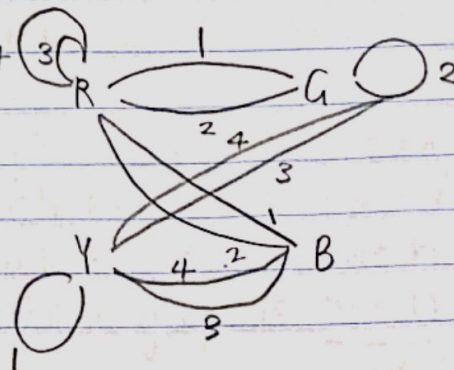 1
3
R
G
2
2
4
3
1
Y
4
2
B
3
1